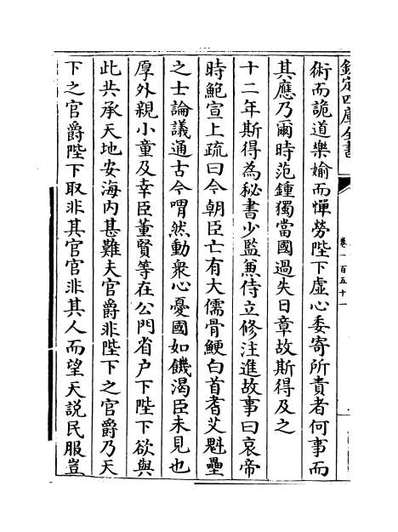 欽定四庫全書
卷一百五十一
術而詭道樂婾而憚勞陛下虛心委寄所責者何事而
其應乃爾時范鍾獨當國過失日章故斯得及之
十二年斯得為秘書少監兼侍立修注進故事曰哀帝
時鮑宣上疏曰今朝臣亡有大儒骨鯁白首耆艾魁壘
之士論議通古今喟然動衆心憂國如饑渴臣未見也
厚外親小童及幸臣董賢等在公門省户下陛下欲與
此共承天地安海内甚難夫官爵非陛下之官爵乃天
下之官爵陛下取非其官官非其人而望天説民服豈